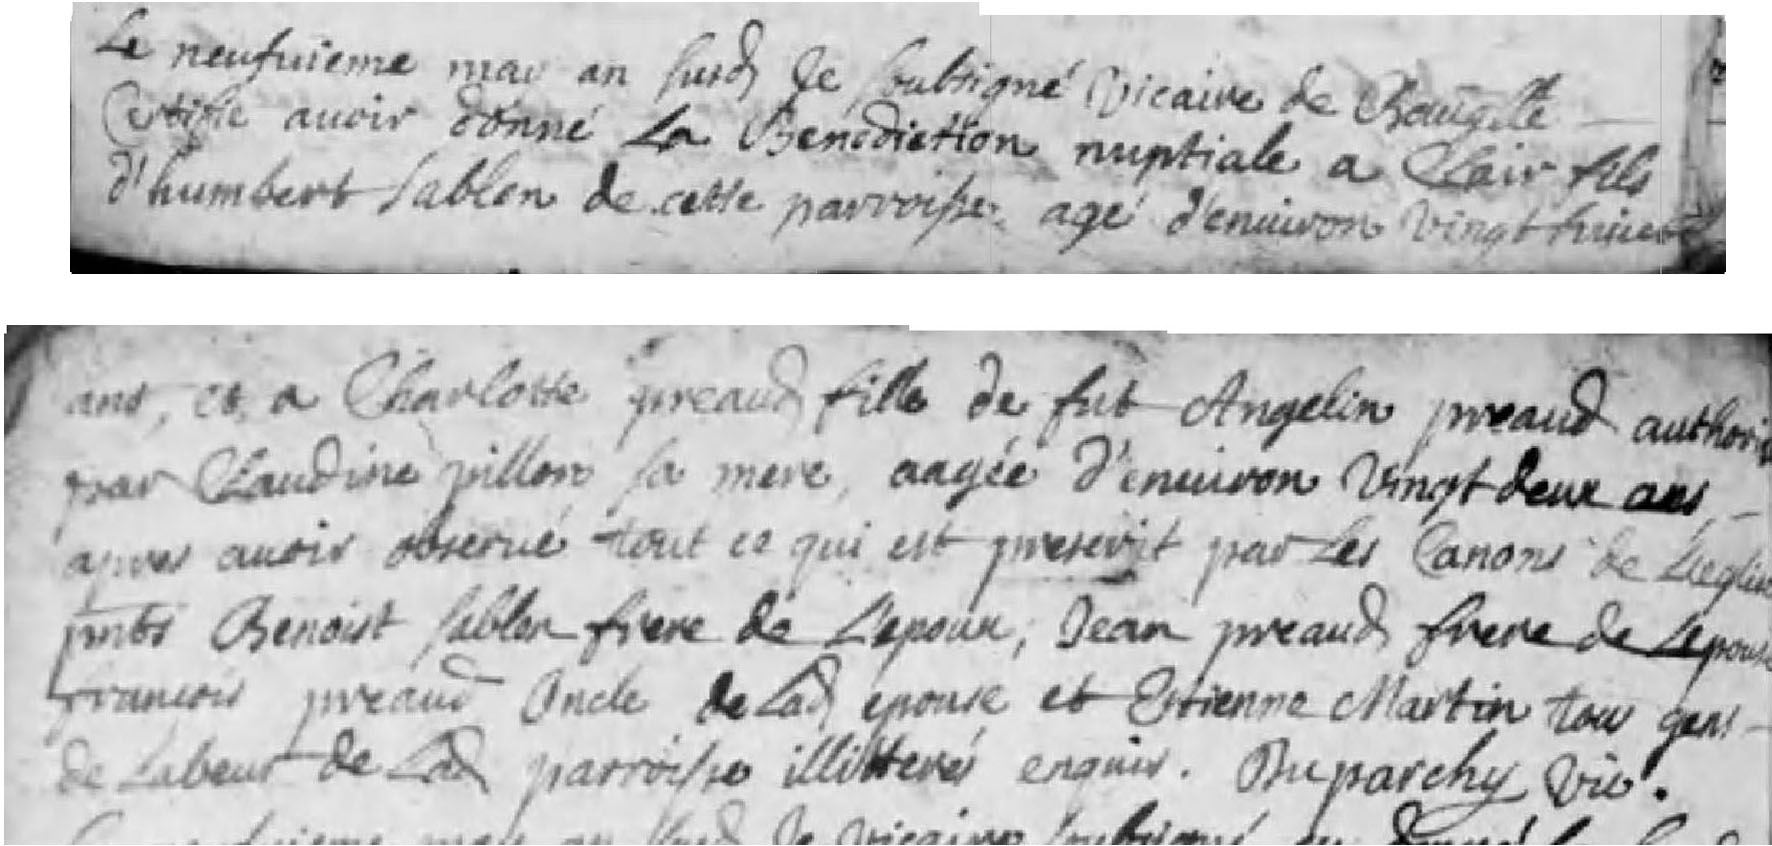 Le neufuieme may an susd Je soubsigné Vicaire de
Certifie auoir donné La Benediction nuptiale a Clair fils
d'humbert sablon de cette parroisse agé d'enuiron vingt huict
ans, et a Charlotte preaud fille de fut Angelin preaud authori
par Claudine pillon sa mere, aagée d'enuiron vingt deux ans
apres auoir obserué tout ce qui est prescrit par Les Canons de L'eglise
pnts Benoist sablon frere de L'epoux, Jean preaud frere de Lepouse
francois preaud Oncle de Lad epouse et Estienne Martin tous gens
de Labeur de Lad parroisse illitterés enquis. Duparchy vic.
neufuieme may an susd Je vicaire soubsigné ay donné la